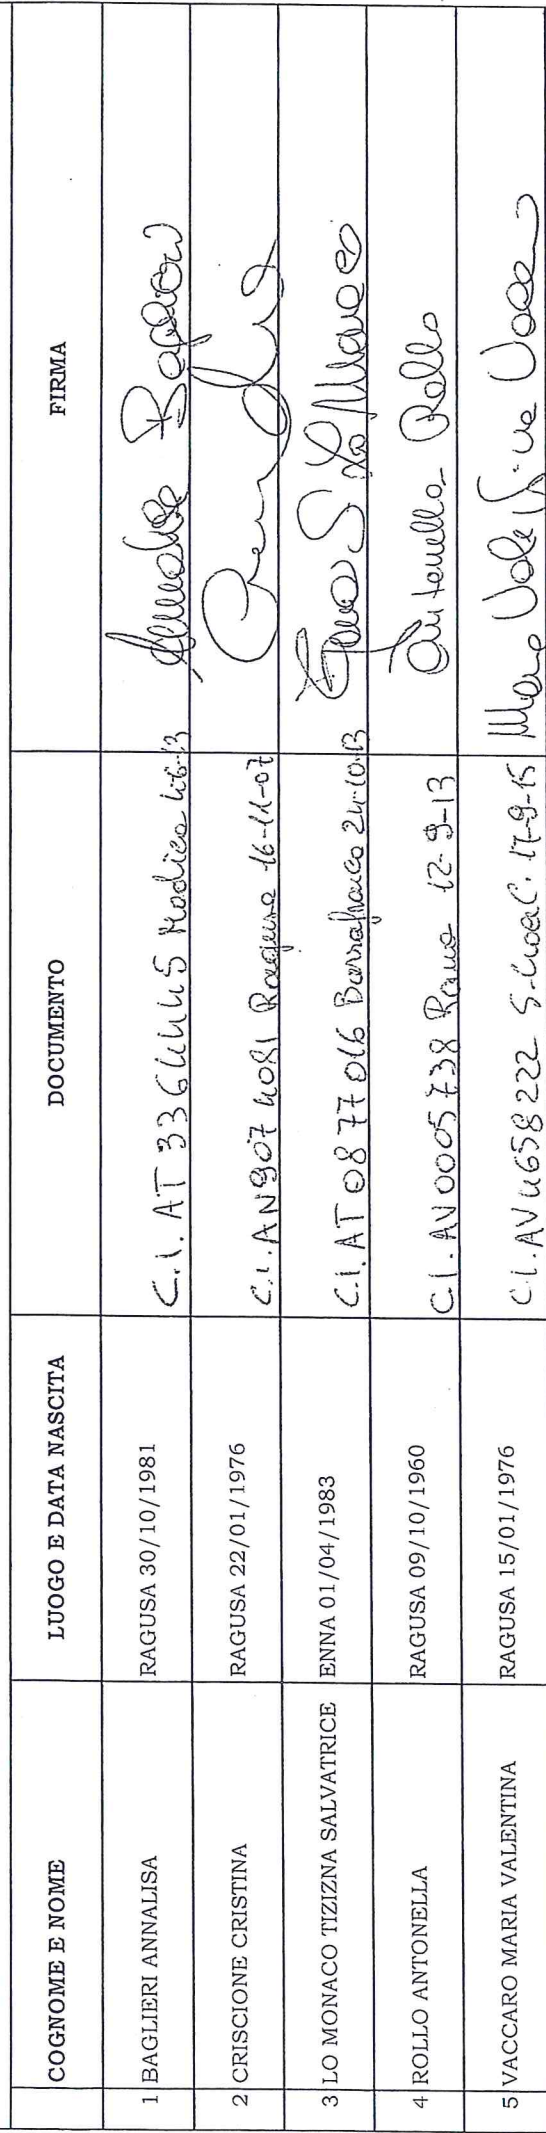 COGNOME E NOME LUOGO E DATA NASCITA DOCUMENTO FIRMA
1 BAGLIERI ANNALISA RAGUSA 30/10/1981 C.I. AT 3364445 Modica
2 CRISCIONE CRISTINA RAGUSA 22/01/1976 C.I. AN9074081 Ragusa 16-11-07
3 LO MONACO TIZIZNA SALVATRICE ENNA 01/04/1983 C.I. AT 0877016 Barrafranca 24-10-13 S. Lo Monaco
4 ROLLO ANTONELLA RAGUSA 09/10/1960 C.I. AV 0005738 Roma 12-9-13 Antonella Rollo
5 VACCARO MARIA VALENTINA RAGUSA 15/01/1976 C.I. AV 4658222 17-9-15